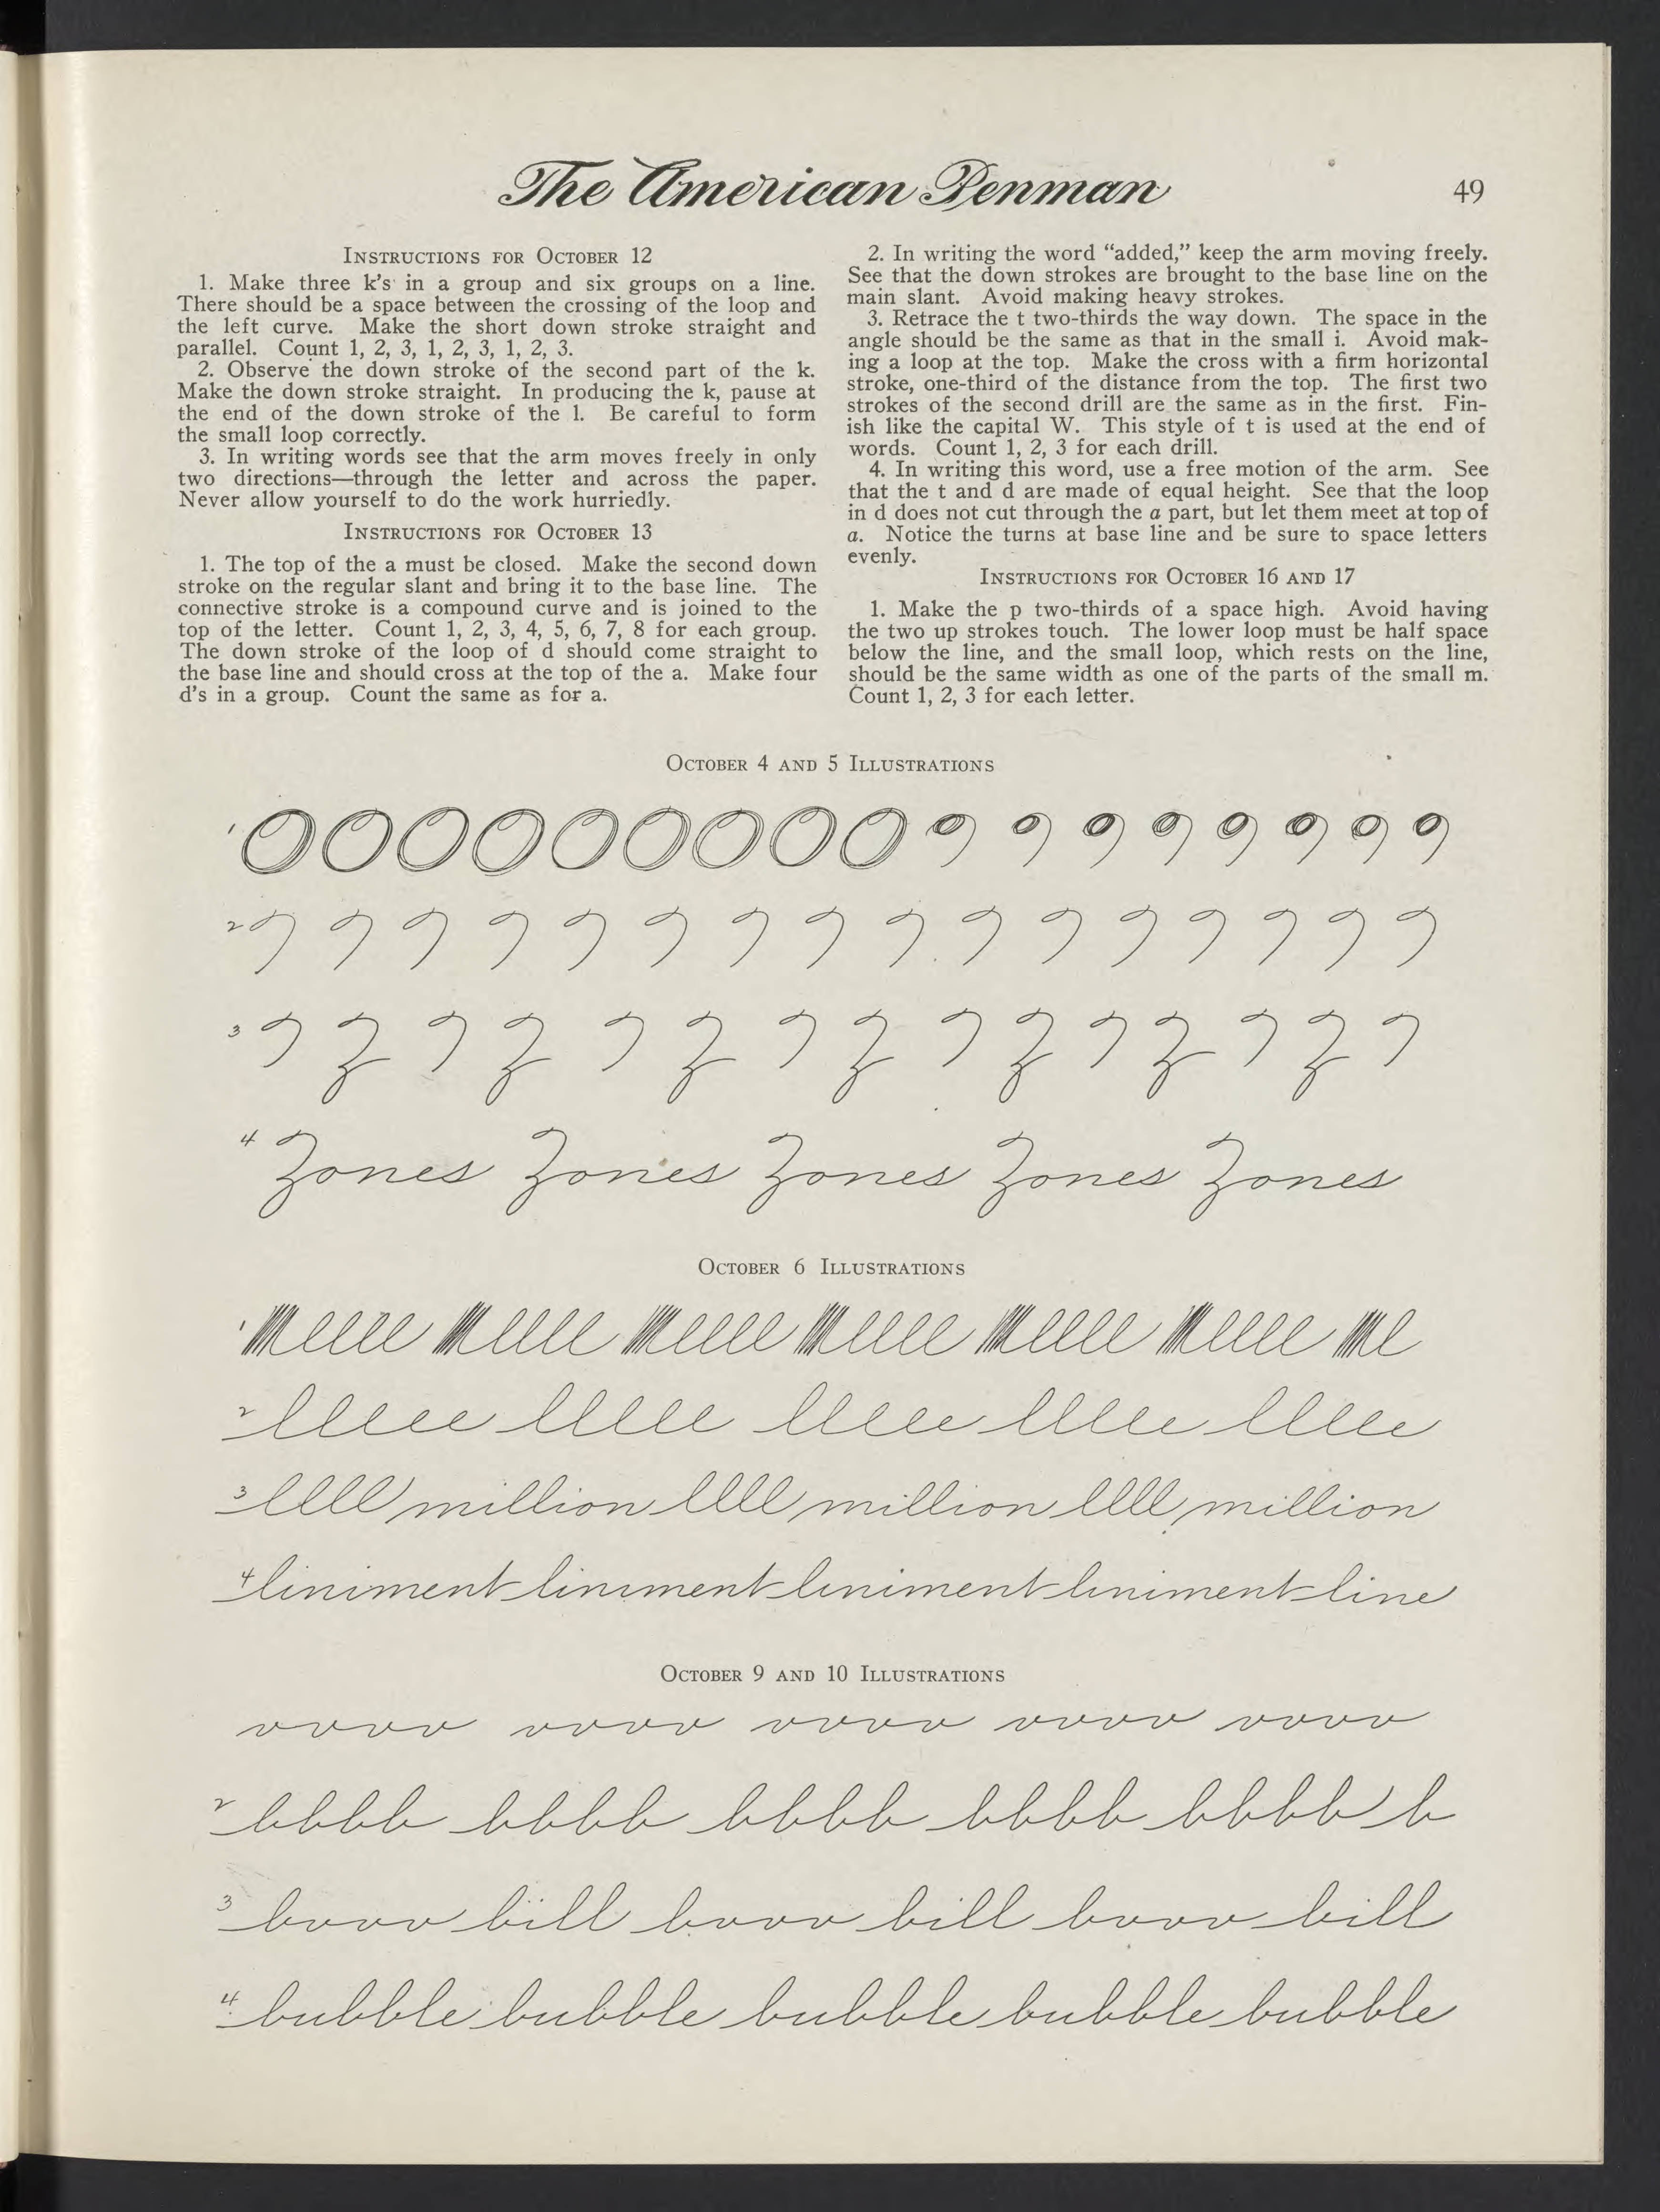 The American Penman
49
INSTRUCTIONS FOR OCTOBER 12
1. Make three k's in a group and six groups on a line.
There should be a space between the crossing of the loop and
the left curve. Make the short down stroke straight and
parallel. Count 1, 2, 3, 1, 2, 3, 1, 2, 3.
2. Observe the down stroke of the second part of the k.
Make the down stroke straight. In producing the k, pause at
the end of the down stroke of the l. Be careful to form
the small loop correctly.
3. In writing words see that the arm moves freely in only
two directions—through the letter and across the paper.
Never allow yourself to do the work hurriedly.
INSTRUCTIONS FOR OCTOBER 13
1. The top of the a must be closed. Make the second down
stroke on the regular slant and bring it to the base line. The
connective stroke is a compound curve and is joined to the
top of the letter. Count 1, 2, 3, 4, 5, 6, 7, 8 for each group.
The down stroke of the loop of d should come straight to
the base line and should cross at the top of the a. Make four
d's in a group. Count the same as for a.
2. In writing the word “added,” keep the arm moving freely.
See that the down strokes are brought to the base line on the
main slant. Avoid making heavy strokes.
3. Retrace the t two-thirds the way down. The space in the
angle should be the same as that in the small i. Avoid mak-
ing a loop at the top. Make the cross with a firm horizontal
stroke, one-third of the distance from the top. The first two
strokes of the second drill are the same as in the first. Fin-
ish like the capital W. This style of t is used at the end of
words. Count 1, 2, 3 for each drill.
4. In writing this word, use a free motion of the arm. See
that the t and d are made of equal height. See that the loop
in d does not cut through the a part, but let them meet at top of
a. Notice the turns at base line and be sure to space letters
evenly.
INSTRUCTIONS FOR OCTOBER 16 AND 17
1. Make the p two-thirds of a space high. Avoid having
the two up strokes touch. The lower loop must be half space
below the line, and the small loop, which rests on the line,
should be the same width as one of the parts of the small m.
Count 1, 2, 3 for each letter.
OCTOBER 4 AND 5 ILLUSTRATIONS
1
2
3
4 Zones Zones Zones Zones Zones
OCTOBER 6 ILLUSTRATIONS
1
2 lleee lllee lleee lllee lllee
3 llll million llll million llll million
4 liniment liniment liniment liniment line
OCTOBER 9 AND 10 ILLUSTRATIONS
vvvv vvvv vvvv vvvv vvvv
2 bbbb bbbb bbbb bbbb bbbb b
3 bvvv bill bvvv bill bvvv bill
4 bubble bubble bubble bubble bubble